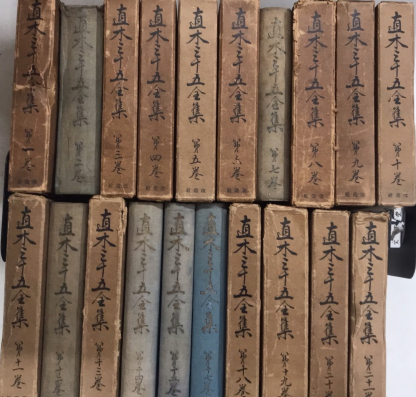 直木三十五全集 第一巻
直木三十五全集 第二巻
直木三十五全集 第三巻
直木三十五全集 第四巻
直木三十五全集 第五巻
直木三十五全集 第六巻
直木三十五全集 第七巻
直木三十五全集 第八巻
直木三十五全集 第九巻
直木三十五全集 第十巻
直木三十五全集 第十一巻
直木三十五全集 第十二巻
直木三十五全集 第十三巻
直木三十五全集 第十四巻
直木三十五全集 第十五巻
直木三十五全集
直木三十五全集 第十八巻
直木三十五全集 第十九巻
直木三十五全集 第二十巻
直木三十五全集 第二十一巻